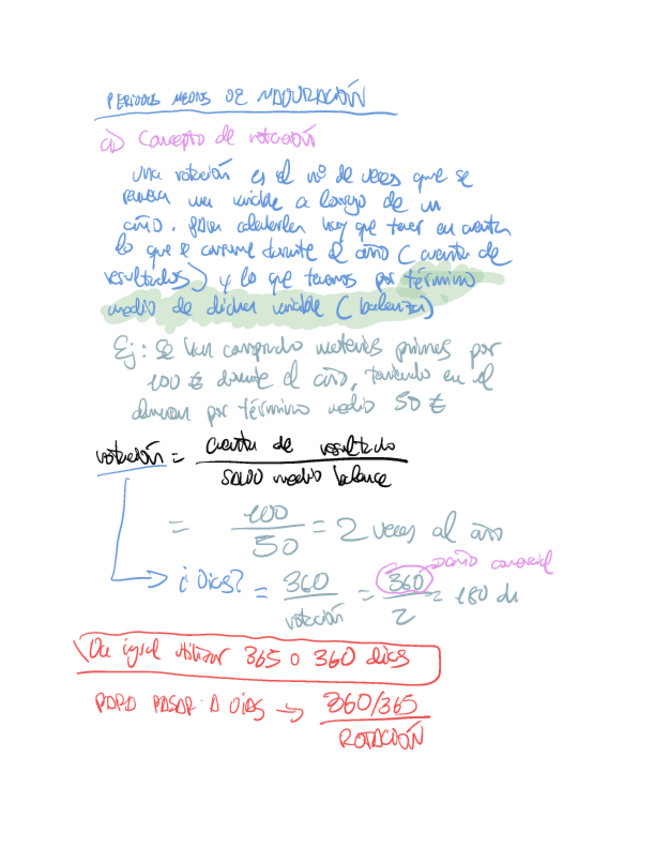 PERIODOS MEDIOS DE MADURACIÓN
a) Concepto de rotación
Una rotación es el nº de veces que se
renueva una variable a lo largo de un
año. Para calcularla hay que tener en cuenta
lo que se consume durante el año (cuenta de
resultados) y lo que tenemos por término
medio de dicha variable (balance)
Ej: Se han comprado materias primas por
100 € durante el año, teniendo en el
almacen por término medio 50 €
rotación = cuenta de resultado / saldo medio balance
= 100 / 50 = 2 veces al año
→ año comercial
→ ¿Dias? = 360 / rotación = 360 / 2 = 180 dias
Da igual utilizar 365 o 360 dias
PARA PASAR A DIAS → 360/365 / ROTACIÓN